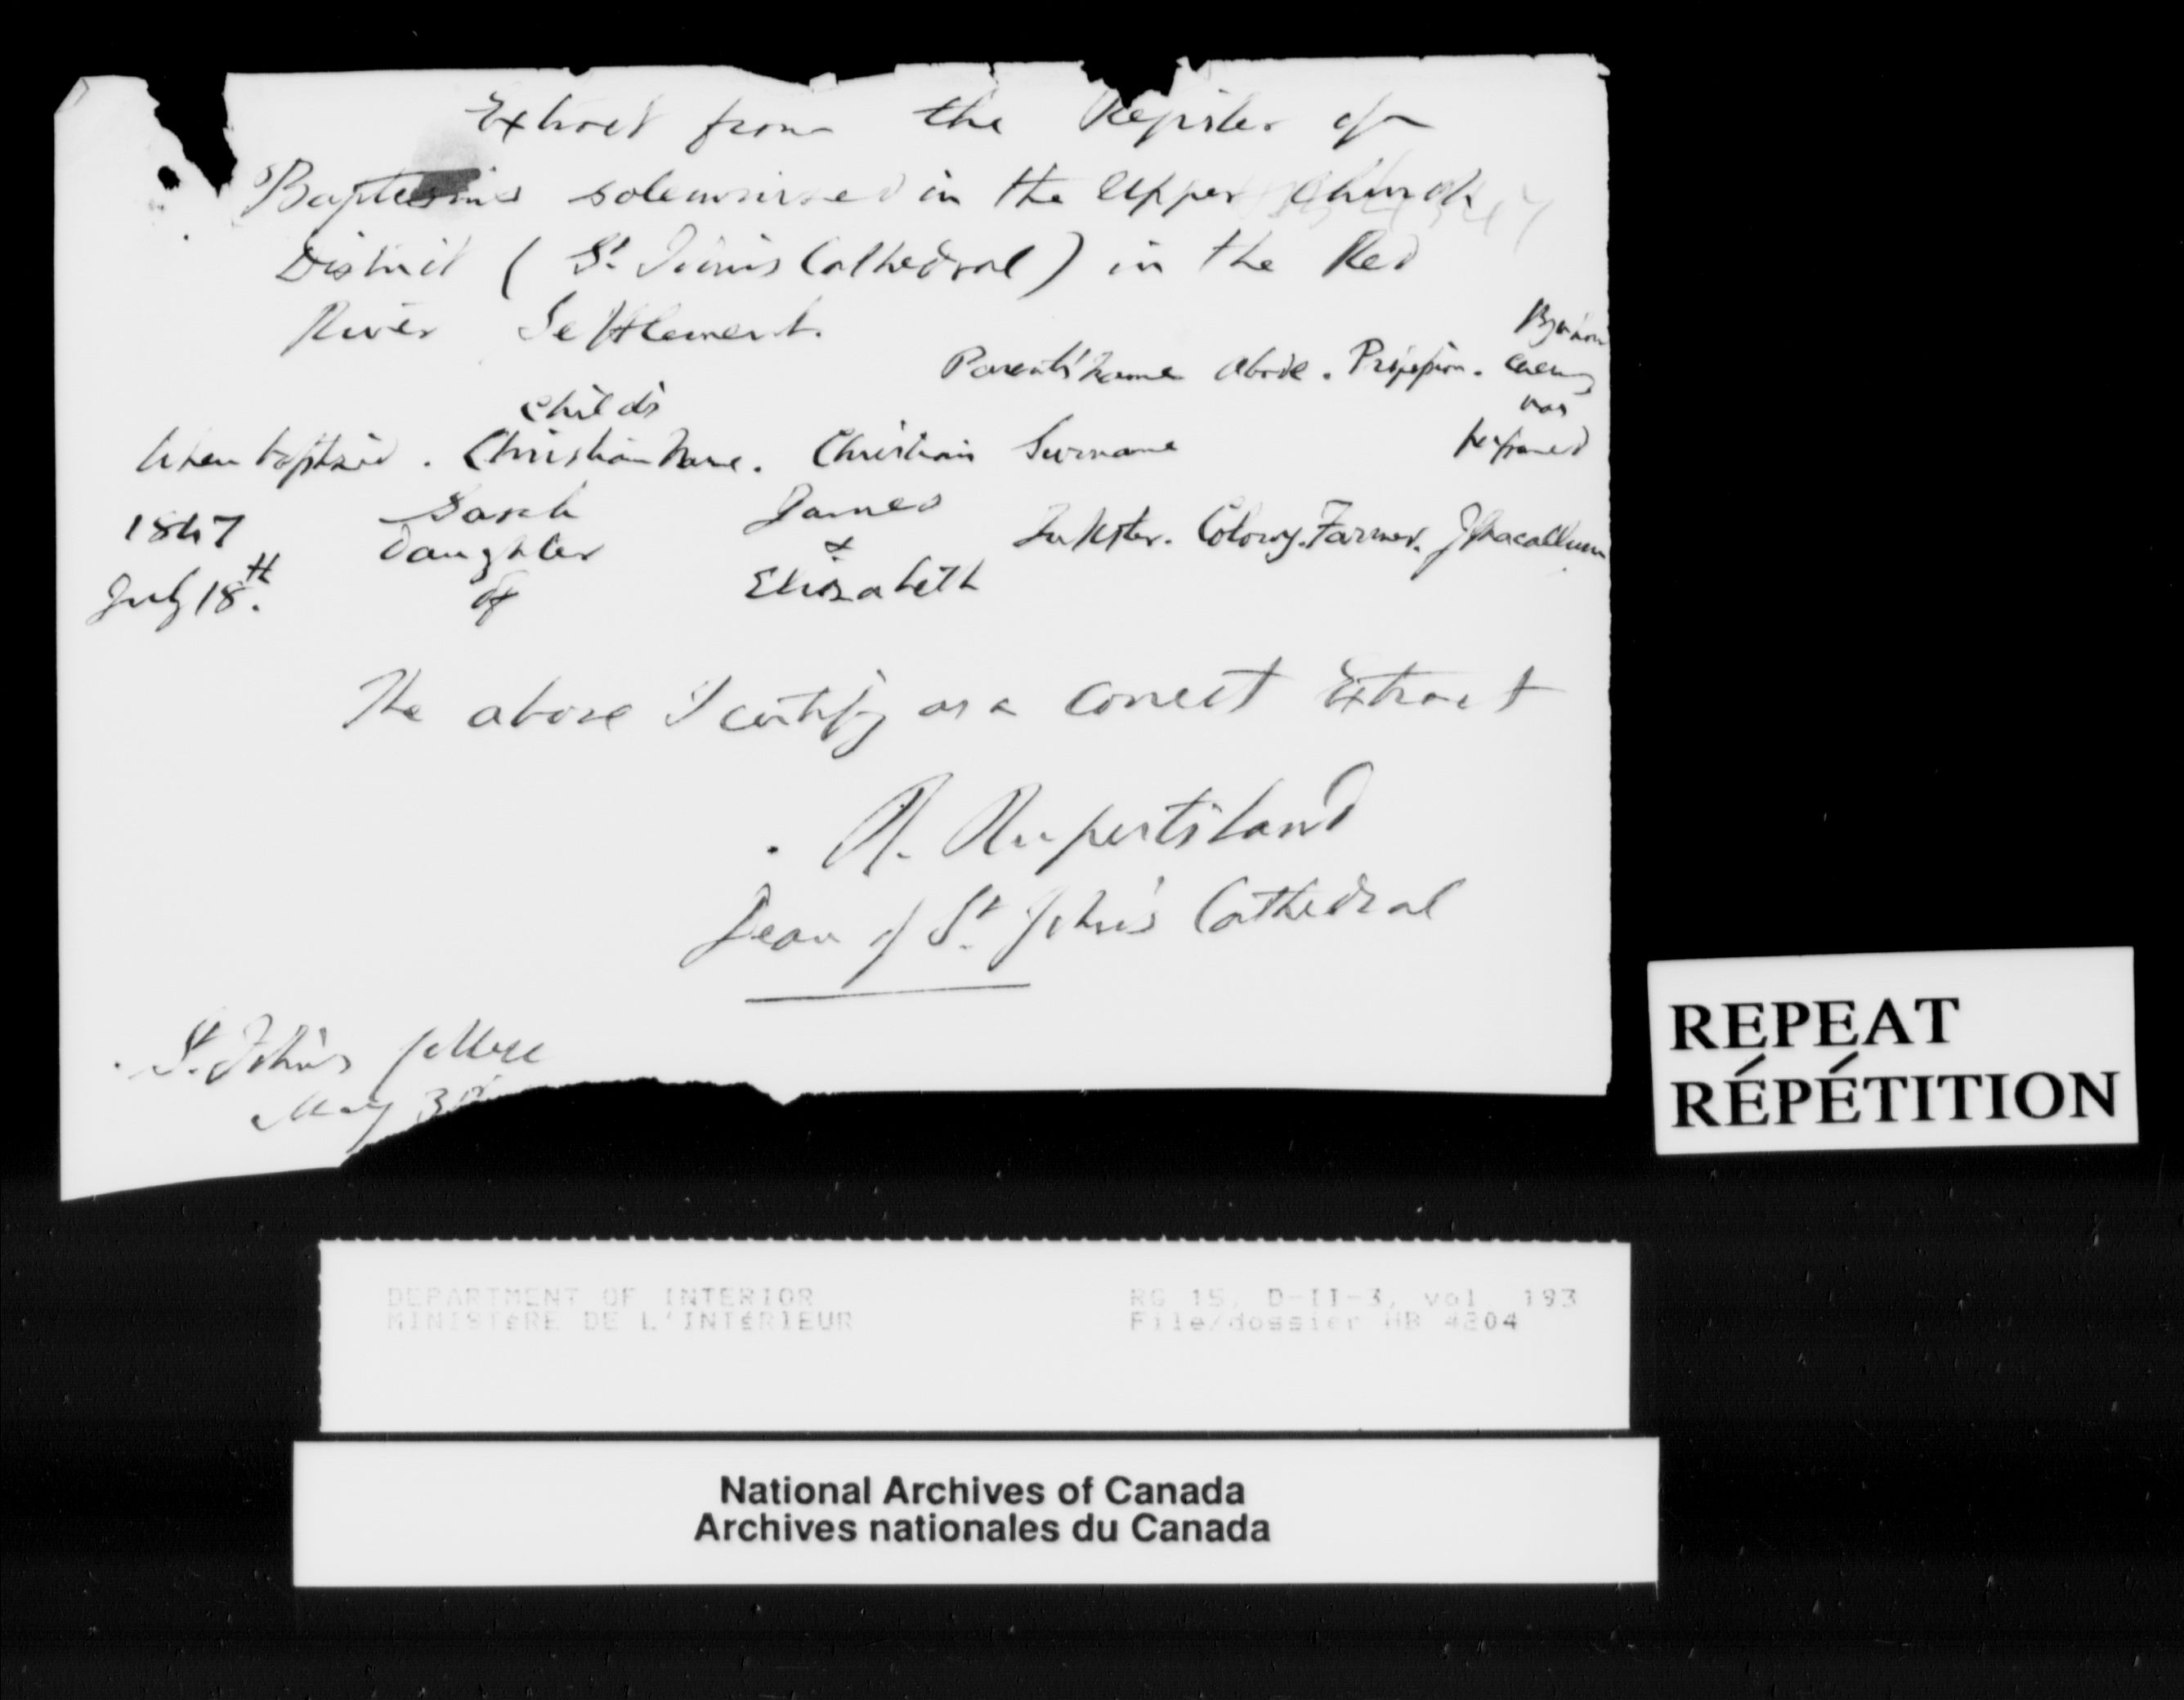 Extract from the Register of
Baptisms solemnised in the Upper Church
District (St. John's Cathedral) in the Red
River Settlement.
By whom
Parents' name Abode. Profession. cerem
Child's was
When baptized. Christian Name. Christian Surname performed
1847 Sarah James
Daughter & Inkster. Colony. Farmer. J Macallum
July 18th. of Elizabeth
The above I certify as a correct Extract
R. Rupertsland
Dean of St. John's Cathedral
St. John's College
May
REPEAT
RÉPÉTITION
DEPARTMENT OF INTERIOR RG 15, D-II-3, vol. 193
MINISTÈRE DE L'INTÉRIEUR File/dossier HB 4204
National Archives of Canada
Archives nationales du Canada